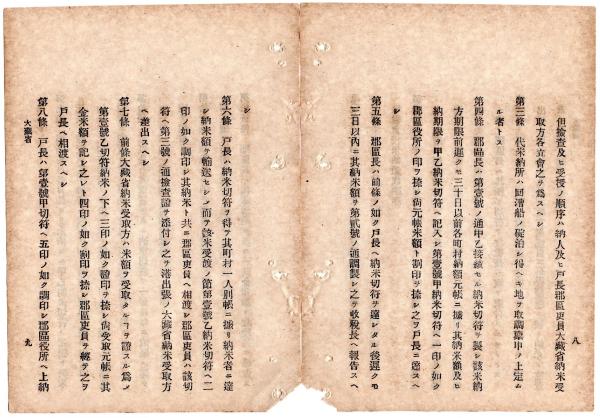 但撿査及ヒ受授ノ順序ハ納人及ヒ戸長郡區吏員大藏省納米受
取方各立會之ヲ爲スヘシ
第三條 代米納所ハ回漕船ノ碇泊シ得ヘキ地ヲ取調稟申ノ上定ム
ル者トス
第四條 郡區長ハ第壹號ノ通甲乙接續セル納米切符ヲ製シ該米納
方期限前遲クモ三十日以前各町村納額元帳ニ據リ其納米額及ヒ
納期限ヲ甲乙納米切符ヘ記入シ第壹號甲納米切符ヘ一印ノ如ク
郡區役所ノ印ヲ捺シ尙元帳米額ト割印ヲ捺シ之ヲ戸長ニ達スヘ
シ
第五條 郡區長ハ前條ノ如ク戸長ヘ納米切符ヲ達シタル後遲クモ
三日以內ニ其納米額ヲ第貳號ノ通調製シ之ヲ收稅長ヘ報告スヘ
シ
第六條 戸長ハ納米切符ヲ得ヲ其町村一人別帳ニ據リ納米者ニ達
シ納米額ヲ輸送セシメ而ヲ該米受渡ノ節第壹號乙納米切符ヘ二
印ノ如ク調印シ其納米ト共ニ郡區吏員ヘ相渡シ郡區吏員ハ該切
符ヘ第三號ノ通撿查證ヲ添付シ之ヲ港出張ノ大藏省納米受取方
ヘ差出スヘシ
第七條 前條大藏省納米受取方ハ米額ヲ受取タルヿヲ證スル爲メ
第壹號乙切符納米ノ下ヘ三印ノ如ク證印ヲ捺シ尙受取元帳ニ其
金米額ヲ記シ之レト四印ノ如ク割印ヲ捺シ郡區吏員ヲ經テ之ヲ
戸長ヘ相渡スヘシ
第八條 戸長ハ第壹號甲切符ヘ五印ノ如ク調印シ郡區役所ヘ上納
大藏省
八
九